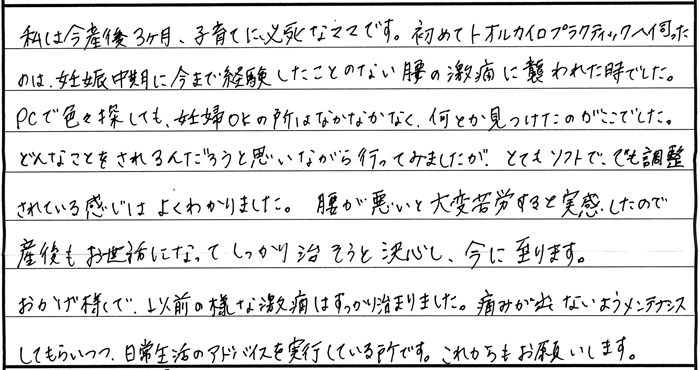 私は今産後3ヶ月、子育てに必死なママです。初めてトオルカイロプラクティックへ伺った
のは、妊娠中期に今まで経験したことのない腰の激痛に襲われた時でした。
PCで色々探しても、妊婦OKの所はなかなかなく、何とか見つけたのがここでした。
どんなことをされるんだろうと思いながら行ってみましたが、とてもソフトで、でも調整
されている感じはよくわかりました。腰が悪いと大変苦労すると実感したので
産後もお世話になってしっかり治そうと決心し、今に至ります。
おかげ様で、以前の様な激痛はすっかり治まりました。痛みが出ないようメンテナンス
してもらいつつ、日常生活のアドバイスを実行している所です。これからもお願いします。